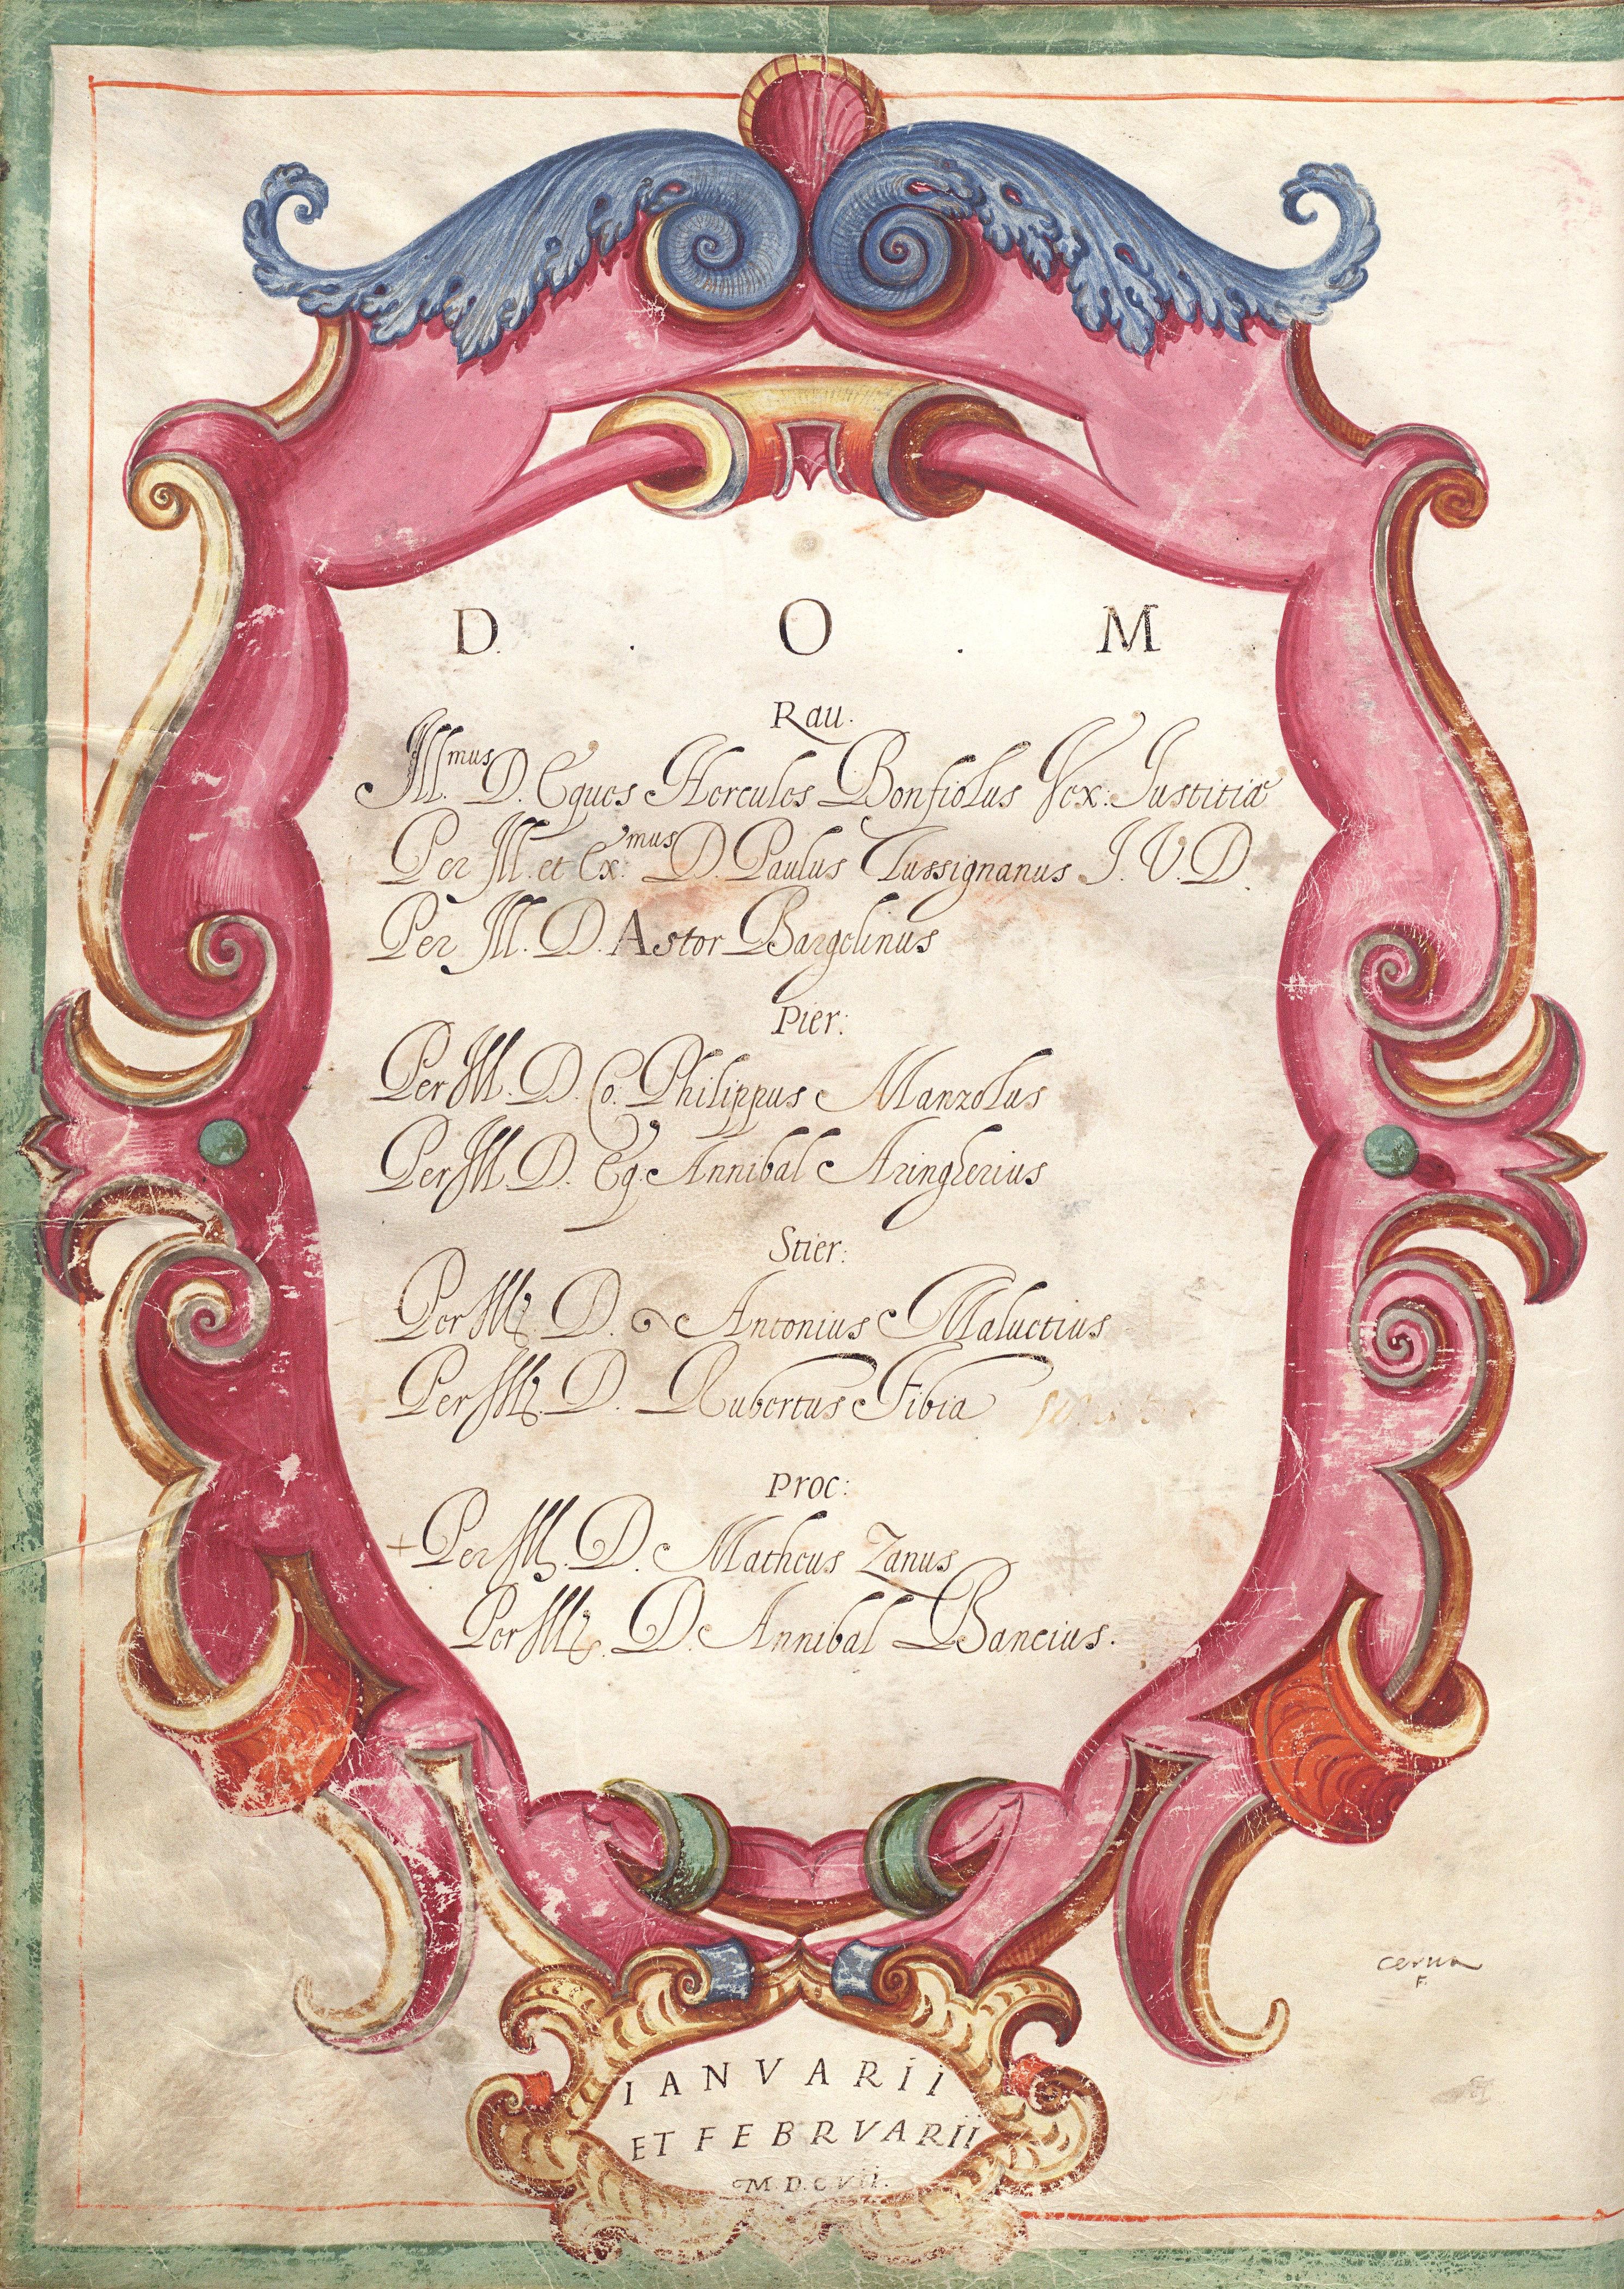 D. . O . M
Rau.
Ill.mus D. Eques Hercules Bonfiolus Vex: Iustitiæ
Per Ill. et Ex.mus D. Paulus Tussignanus I. V. D.
Per Ill. D. Astor Bargelinus
Pier:
Per Ill. D. Co. Philippus Manzolus
Per Ill. D. Eq. Annibal Aringherius
Stier:
Per Ill. D. Antonius Maluetius
Per Ill. D. Rubertus Fibia
Proc:
+ Per Ill. D. Matheus Zanus
Per Ill. D. Annibal Bancius.
cerua
F.
IANVARII
ET FEBRVARII
M.D.C.VII.